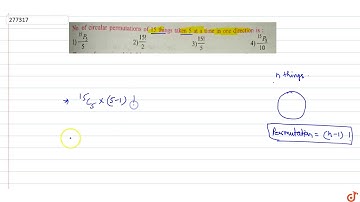 277317
No. of circular permutations of 15 things taken 5 at a time in one direction is :
1) ¹⁵P₅/5 2) 15!/2 3) 15!/5 4) ¹⁵P₅/10
n things.
⇒ ¹⁵C₅ × (5-1) !
Permutation = (n-1) !